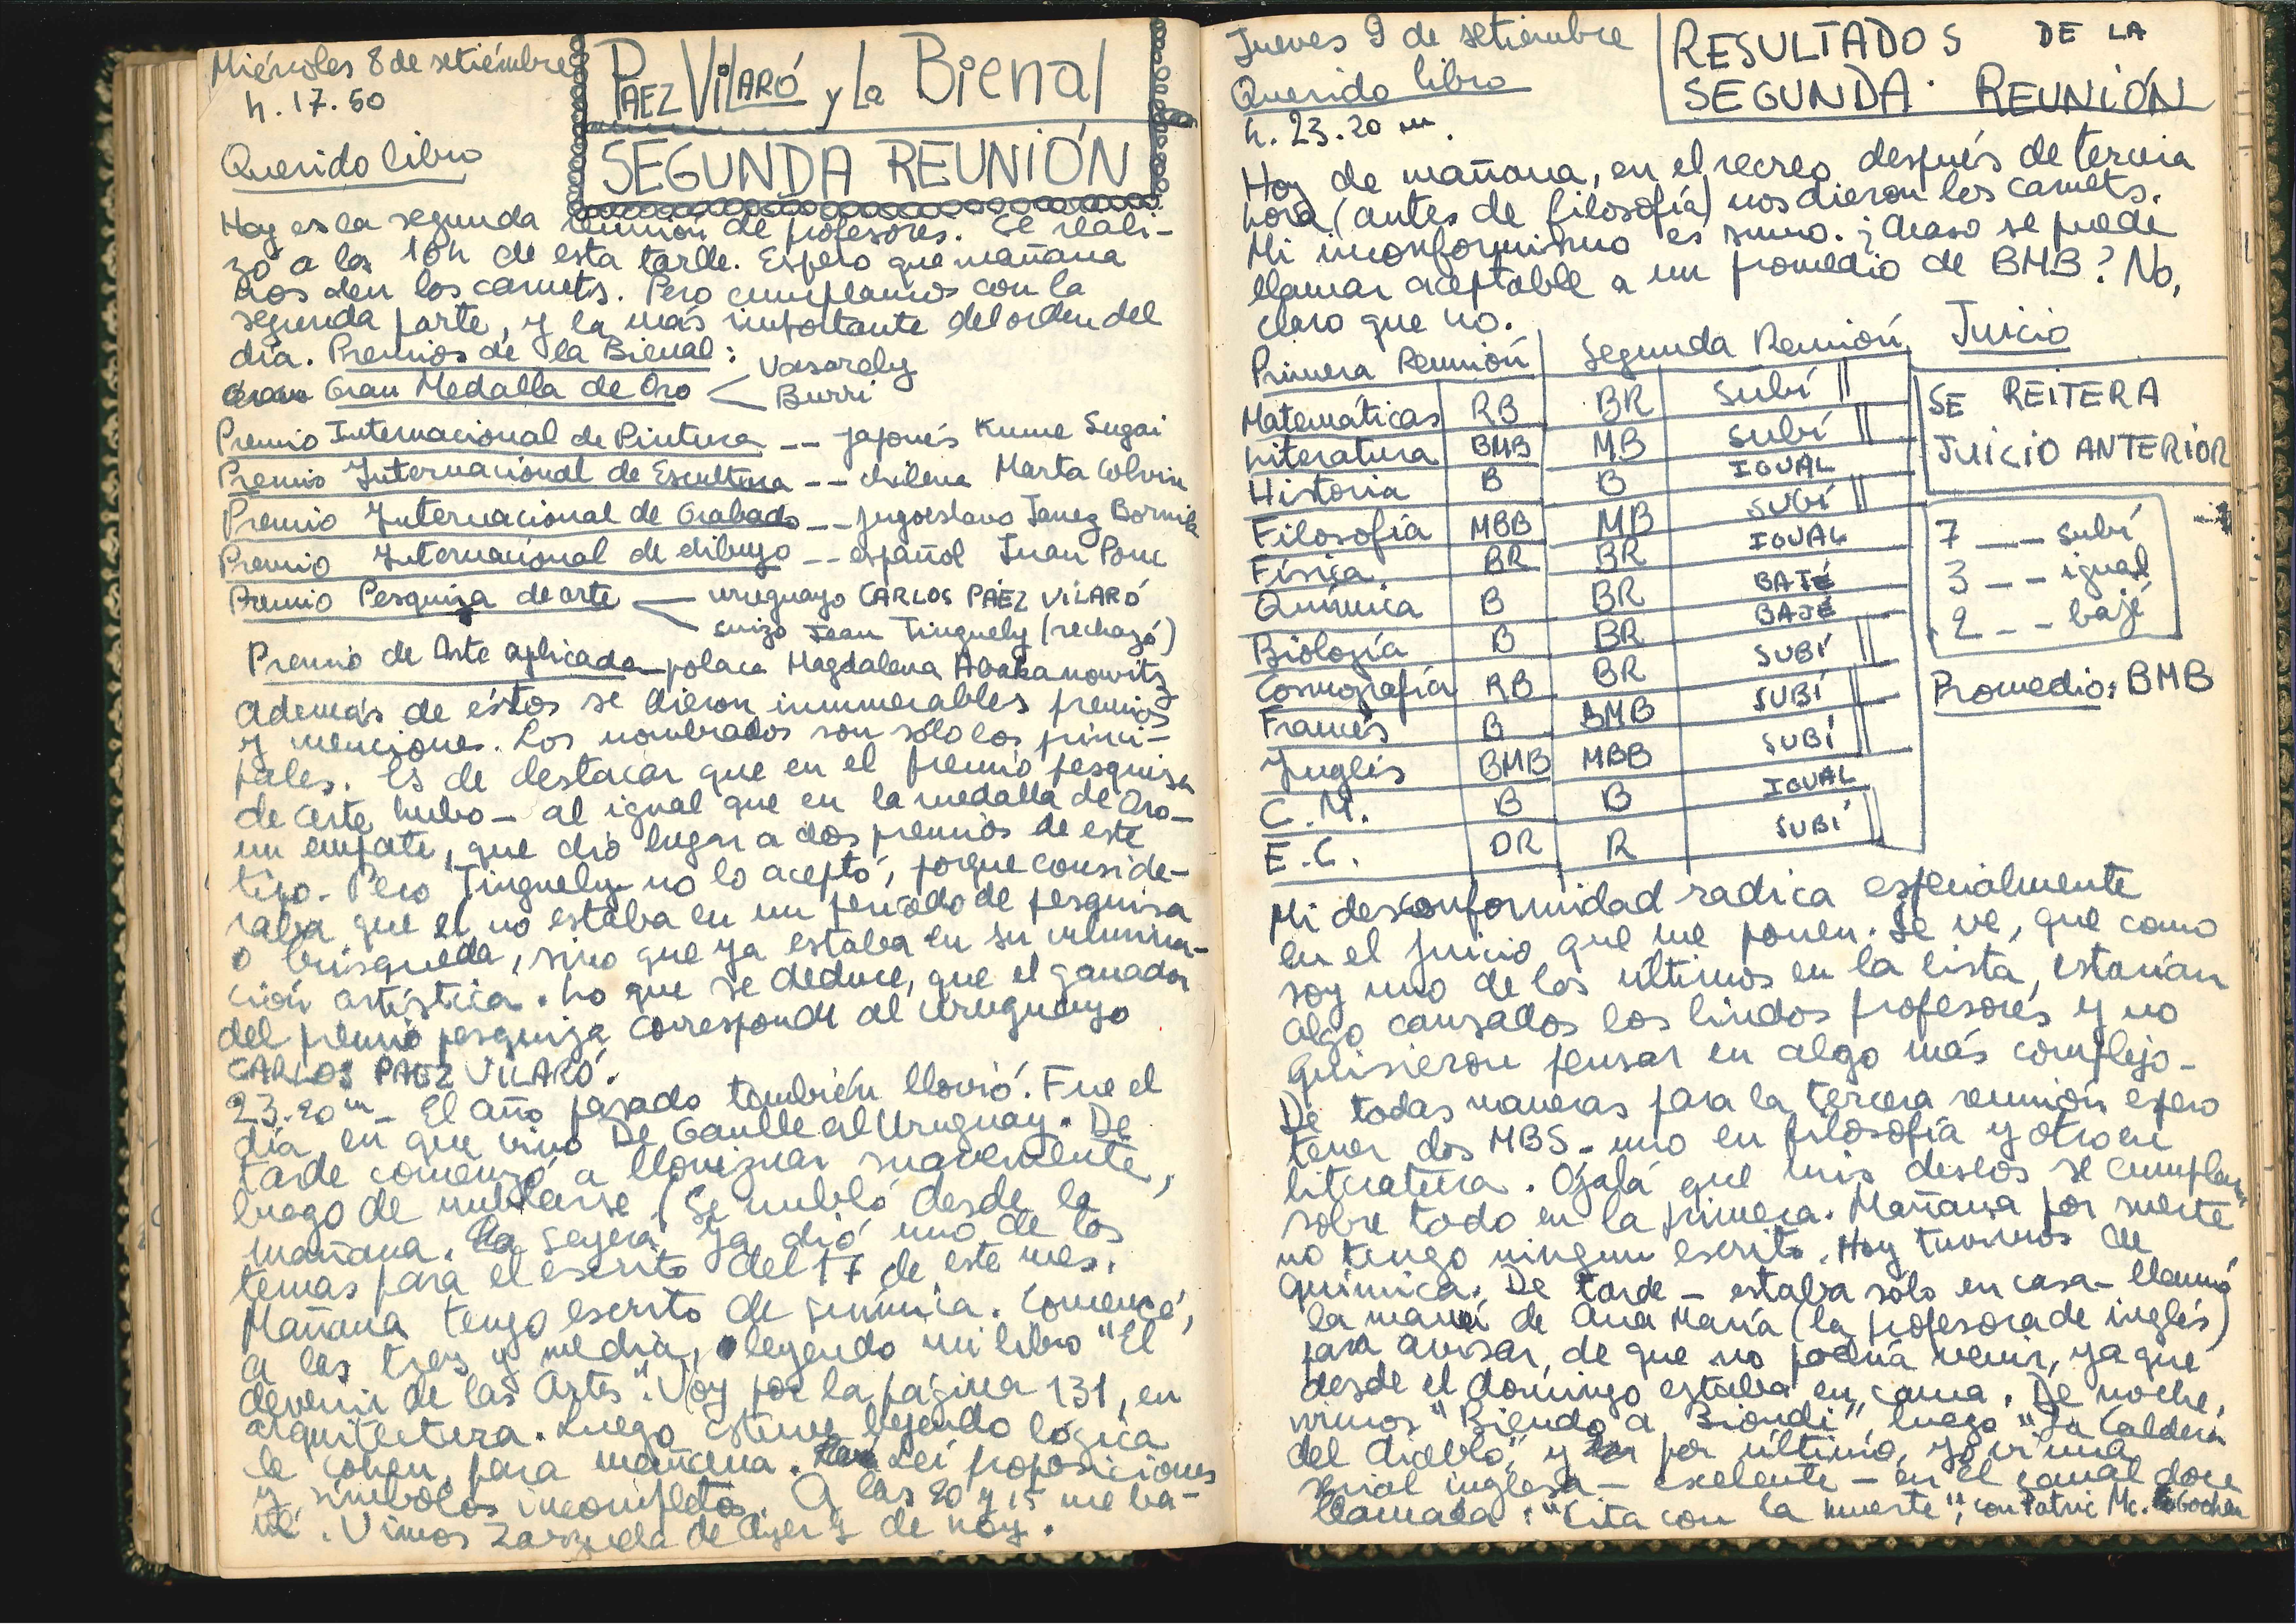 Miércoles 8 de setiémbre
h. 17.50
PAEZ VILARÓ y La Bienal
SEGUNDA REUNIÓN
Querido libro
Hoy es la segunda reunión de profesores. Se reali-
zó a las 16h de esta tarde. Espero que mañana
nos den los carnets. Pero cumplamos con la
segunda parte, y la más importante del orden del
día. Premios de la Bienal:
Gran Medalla de Oro < Vasarely
Burri
Premio Internacional de Pintura -- japonés Kume Sugai
Premio Internacional de Escultura -- chilena Marta Colvin
Premio Internacional de Grabado -- jugoeslavo Janez Bernik
Premio Internacional de dibujo -- español Juan Ponc
Premio Pesquiza de arte — uruguayo CARLOS PÁEZ VILARÓ
suizo Jean Tinguely (rechazó)
Premio de Arte aplicada - polaca Magdalena Abakanowitz
Además de éstos se dieron innumerables premios
y menciones. Los nombrados son sólo los princi-
pales. Es de destacar que en el premio pesquisa
de arte hubo - al igual que en la medalla de Oro -
un empate, que dió lugar a dos premios de este
tipo. Pero Tinguely no lo aceptó, porque conside-
raba que él no estaba en un período de pesquisa
o búsqueda, sino que ya estaba en su culmina-
ción artística. Lo que se deduce, que el ganador
del premio pesquiza corresponde al uruguayo
CARLOS PAEZ VILARÓ.
23.20 m - El año pasado también llovió. Fue el
día en que vino De Gaulle al Uruguay. De
tarde comenzó a lloviznar suavemente,
luego de nublarse. (Se nubló desde la
mañana. La Seyera ya dió uno de los
temas para el escrito del 17 de este mes.
Mañana tengo escrito de química. Comencé,
a las tres y media, leyendo mi libro "El
devenir de las Artes". Voy por la página 131, en
arquitectura. Luego estuve leyendo lógica
de Cohen, para mañana. Leí proposiciones
y símbolos incompletos. A las 20 y 15 me ba-
ñé. Vimos Zarzuela de Ayer y de hoy.
Jueves 9 de setiembre
RESULTADOS DE LA
SEGUNDA REUNIÓN
Querido libro
h. 23.20 m.
Hoy de mañana, en el recreo después de tercera
hora (antes de filosofía) nos dieron los carnets.
Mi inconformismo es sumo. ¿Acaso se puede
llamar aceptable a un promedio de BMB? No,
claro que no.
Primera Reunión Segunda Reunión Juicio
Matemáticas RB BR SUBÍ
Literatura BMB MB SUBÍ
Historia B B IGUAL
Filosofía MBB MB SUBÍ
Física BR BR IGUAL
Química B BR BAJÉ
Biología B BR BAJÉ
Cosmografía RB BR SUBÍ
Francés B BMB SUBÍ
Inglés BMB MBB SUBÍ
C.M. B B IGUAL
E.C. DR R SUBÍ
SE REITERA
JUICIO ANTERIOR
7 -- subí
3 -- igual
2 -- bajé
Promedio: BMB
Mi desconformidad radica espenialmente
en el juicio que me ponen. Se ve, que como
soy uno de los últimos en la lista, estarían
algo cansados los lindos profesores y no
quisieron pensar en algo más complejo.
De todas maneras para la tercera reunión espero
tener dos MBS - uno en filosofía y otro en
literatura. Ojalá que mis deseos se cumplan
sobre todo en la primera. Mañana por suerte
no tengo ningun escrito. Hoy tuvimos de
química. De tarde - estaba sólo en casa - llamó
la mamá de Ana María (la profesora de inglés)
para avisar, de que no podría venir, ya que
desde el domingo estaba en cama. De noche,
vimos "Riendo a Biondi", luego "La Caldera
del diablo", y por último, yo vi una
serial inglesa - exelente - en el canal doce
llamada: "Cita con la muerte", con Patric Mc.